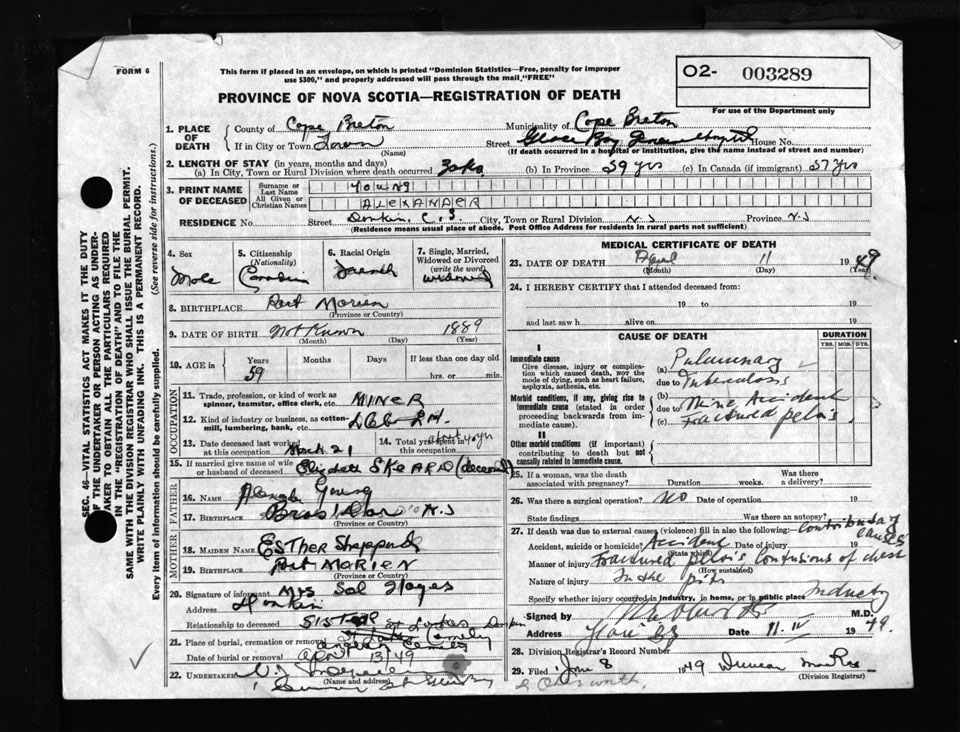 FORM 6
This form if placed in an envelope, on which is printed "Dominion Statistics—Free, penalty for improper
use $300," and properly addressed will pass through the mail "FREE"
O2- 003289
For use of the Department only
PROVINCE OF NOVA SCOTIA—REGISTRATION OF DEATH
1. PLACE OF DEATH
County of Cape Breton Municipality of Cape Breton
If in City or Town Town (Name) Street Glace Bay General Hospital House No.
(If death occurred in a hospital or institution, give the name instead of street and number)
2. LENGTH OF STAY (in years, months and days)
(a) In City, Town or Rural Division where death occurred (b) In Province 59 yrs (c) In Canada (if immigrant) 57 yrs
3. PRINT NAME OF DECEASED
Surname or Last Name YOUNG
All Given or Christian Names ALEXANDER
RESIDENCE No. Street Donkin, C.B City, Town or Rural Division N.S Province N.S
(Residence means usual place of abode. Post Office Address for residents in rural parts not sufficient)
4. Sex
Male
5. Citizenship (Nationality)
Canadian
6. Racial Origin
French
7. Single, Married, Widowed or Divorced (write the word)
widowed
8. BIRTHPLACE Port Morien
(Province or Country)
9. DATE OF BIRTH Not Known 1889
(Month) (Day) (Year)
10. AGE in Years Months Days If less than one day old
59 hrs. or min.
OCCUPATION
11. Trade, profession, or kind of work as spinner, teamster, office clerk, etc. MINER
12. Kind of industry or business, as cotton-mill, lumbering, bank, etc.
13. Date deceased last worked at this occupation March 21
14. Total yrs. spent in this occupation about 40 yrs
15. If married give name of wife or husband of deceased Elizabeth SKEARD (deceased)
FATHER
16. NAME Young
17. BIRTHPLACE Bras d'Or N.S
(Province or Country)
MOTHER
18. MAIDEN NAME ESTHER Sheppard
19. BIRTHPLACE Port MORIEN
(Province or Country)
20. Signature of informant Mrs Sol Hayes
Address Donkin
Relationship to deceased SISTER
21. Place of burial, cremation or removal
Date of burial or removal April 13/49
22. UNDERTAKER
(Name and address)
MEDICAL CERTIFICATE OF DEATH
23. DATE OF DEATH April 11 1949
(Month) (Day) (Year)
24. I HEREBY CERTIFY that I attended deceased from:
19 to 19
and last saw h alive on 19
CAUSE OF DEATH
DURATION
YRS. MOS. DYS.
I
Immediate cause
Give disease, injury or complication which caused death, not the mode of dying, such as heart failure, asphyxia, asthenia, etc.
(a) Pulmonary
due to Tuberculosis
Morbid conditions, if any, giving rise to immediate cause (stated in order proceeding backwards from immediate cause).
(b)
due to Mine Accident
(c) Fractured pelvis
II
Other morbid conditions (if important) contributing to death but not causally related to immediate cause.
25. If a woman, was the death associated with pregnancy? Duration weeks. Was there a delivery?
26. Was there a surgical operation? no
State findings Was there an autopsy?
27. If death was due to external causes (violence) fill in also the following:— Contributory causes
Accident, suicide or homicide? Accident Date of injury 19
(State which)
Manner of injury Fractured pelvis Contusions of chest
(How sustained)
Nature of injury In the pits
Specify whether injury occurred in industry, in home, or in public place Industry
Signed by M.D.
Address Date 11.IV 1949.
28. Division Registrar's Record Number
29. Filed June 8 1949 Duncan MacRae
(Division Registrar)
SEC. 46—VITAL STATISTICS ACT MAKES IT THE DUTY
OF THE UNDERTAKER OR PERSON ACTING AS UNDER-
TAKER TO OBTAIN ALL THE PARTICULARS REQUIRED
IN THE "REGISTRATION OF DEATH" AND TO FILE THE
SAME WITH THE DIVISION REGISTRAR WHO SHALL ISSUE THE BURIAL PERMIT.
WRITE PLAINLY WITH UNFADING INK. THIS IS A PERMANENT RECORD.
Every item of information should be carefully supplied. (See reverse side for instructions.)